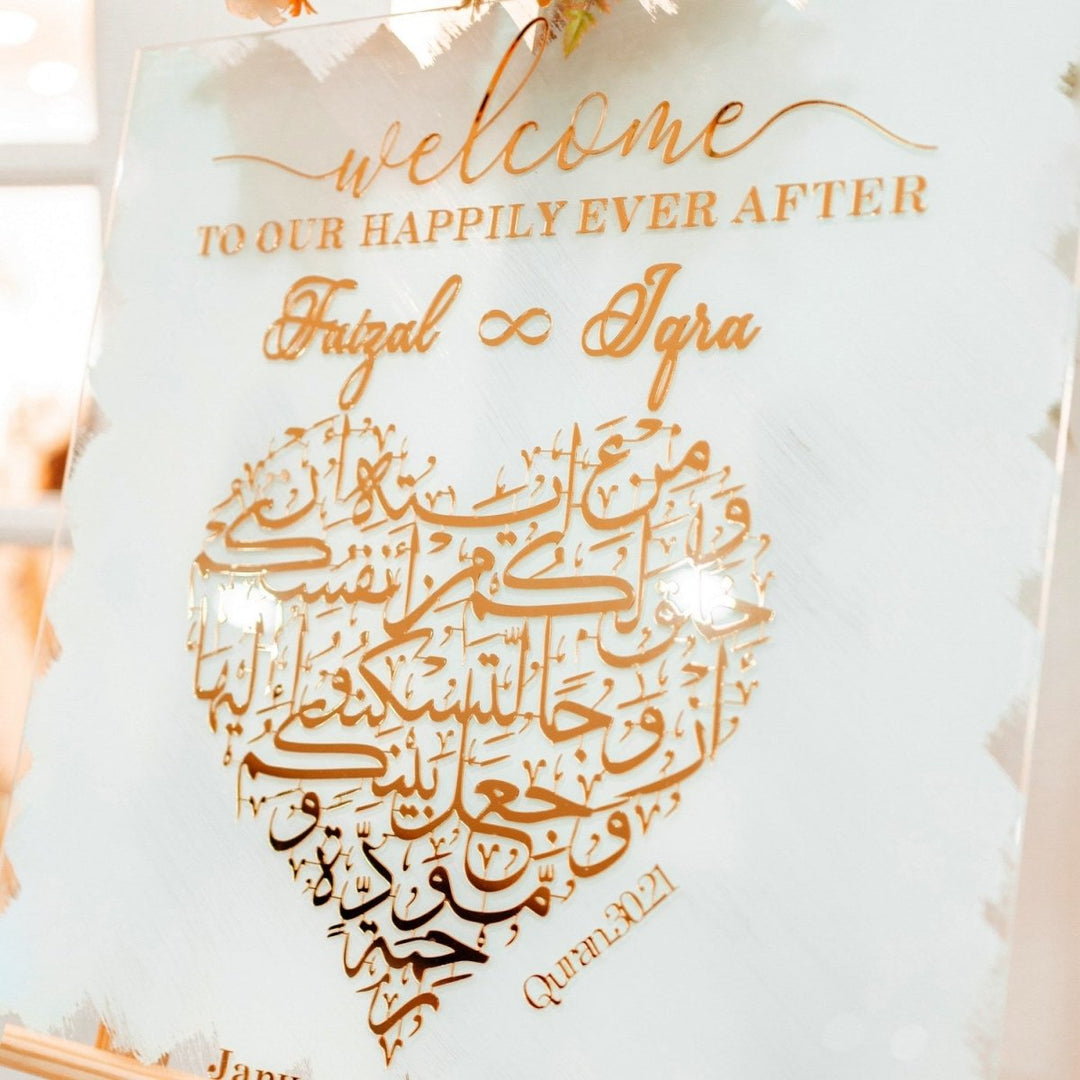 welcome
TO OUR HAPPILY EVER AFTER
Faizal ∞ Iqra
ومن ءايته أن
خلق لكم من أنفسكم
أزوجا لتسكنوا إليها
وجعل بينكم
مودة و
رحمة
Quran.30:21